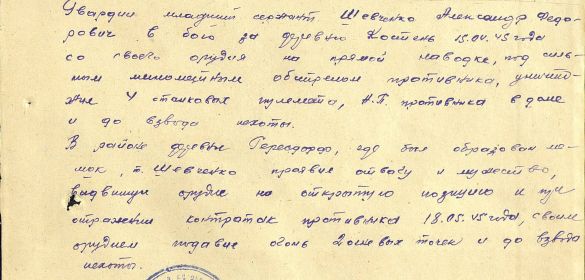 Гвардии младший сержант Шевченко Александр Федо-
рович в бою за деревню Костень 15.04.45 года
со своего орудия на прямой наводке, под силь-
ным минометным обстрелом противника, уничто-
жил 4 станковых пулемета, Н.П. противника в доме
и до взвода пехоты.
В районе деревни где был образован по-
мок, т. Шевченко проявив отвагу и мужество,
выдвинул орудие на открытую позицию и при
отражении контратак противника 18.05.45 года, своим
орудием подавил огонь 2 огневых точек и до взвода
пехоты.